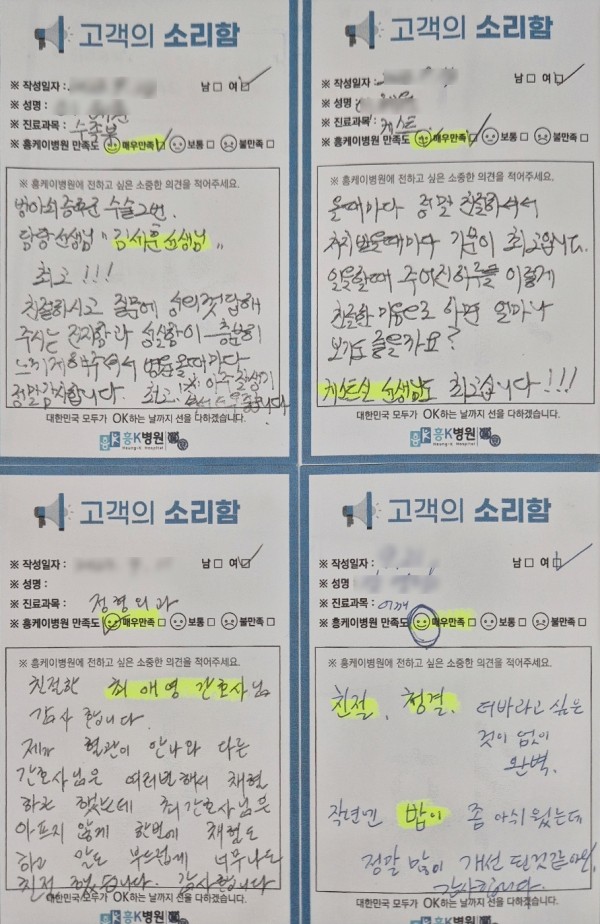 고객의 소리함
※ 작성일자 : 남 □ 여 □
※ 성명 :
※ 진료과목 : 수족부
※ 흥케이병원 만족도 매우만족 □ 보통 □ 불만족 □
※ 흥케이병원에 전하고 싶은 소중한 의견을 적어주세요.
방아쇠 증후군 수술 2번.
담당선생님 " 김세훈 선생님 "
최고 !!!
친절하시고 질문에 성의껏 답해
주시는 진지함과 성실함이 충분히
느끼게 해주셔서 병원올때마다
정말감사합니다. 최고! 아주
대한민국 모두가 OK하는 날까지 선을 다하겠습니다.
흥K병원
Heung-K Hospital
고객의 소리함
※ 작성일자 : 남 □ 여 □
※ 성명 :
※ 진료과목 : 캐스트
※ 흥케이병원 만족도 매우만족 □ 보통 □ 불만족 □
※ 흥케이병원에 전하고 싶은 소중한 의견을 적어주세요.
올때마다 정말 친절하셔서
치치 받을때마다 기분이 최고입니다.
일을할때 주어진하루를 이렇게
친절한 마음으로 하면 얼마나
보기도 좋을까요?
캐스트실 선생님도 최고십니다!!!
대한민국 모두가 OK하는 날까지 선을 다하겠습니다.
흥K병원
Heung-K Hospital
고객의 소리함
※ 작성일자 : 남 □ 여 □
※ 성명 :
※ 진료과목 : 정형외과
※ 흥케이병원 만족도 매우만족 □ 보통 □ 불만족 □
※ 흥케이병원에 전하고 싶은 소중한 의견을 적어주세요.
친절한 최애영 간호사님
감사합니다.
제가 혈관이 안나와 다른
간호사님은 여러번해서 채혈
하곤 했는데 최간호사님은
아프지 않게 한번에 채혈도
하고 말도 부드럽게 너무나도
친절 했습니다. 감사합니다
대한민국 모두가 OK하는 날까지 선을 다하겠습니다.
흥K병원
고객의 소리함
※ 작성일자 : 남 □ 여 □
※ 성명
※ 진료과목 : 어깨
※ 흥케이병원 만족도 매우만족 □ 보통 □ 불만족 □
※ 흥케이병원에 전하고 싶은 소중한 의견을 적어주세요.
친절, 청결. 더바라고 싶은
것이 없이
완벽.
작년엔 밥이 좀 아쉬웠는데
정말 많이 개선 된것같아요.
감사합니다.
대한민국 모두가 OK하는 날까지 선을 다하겠습니다.
흥K병원